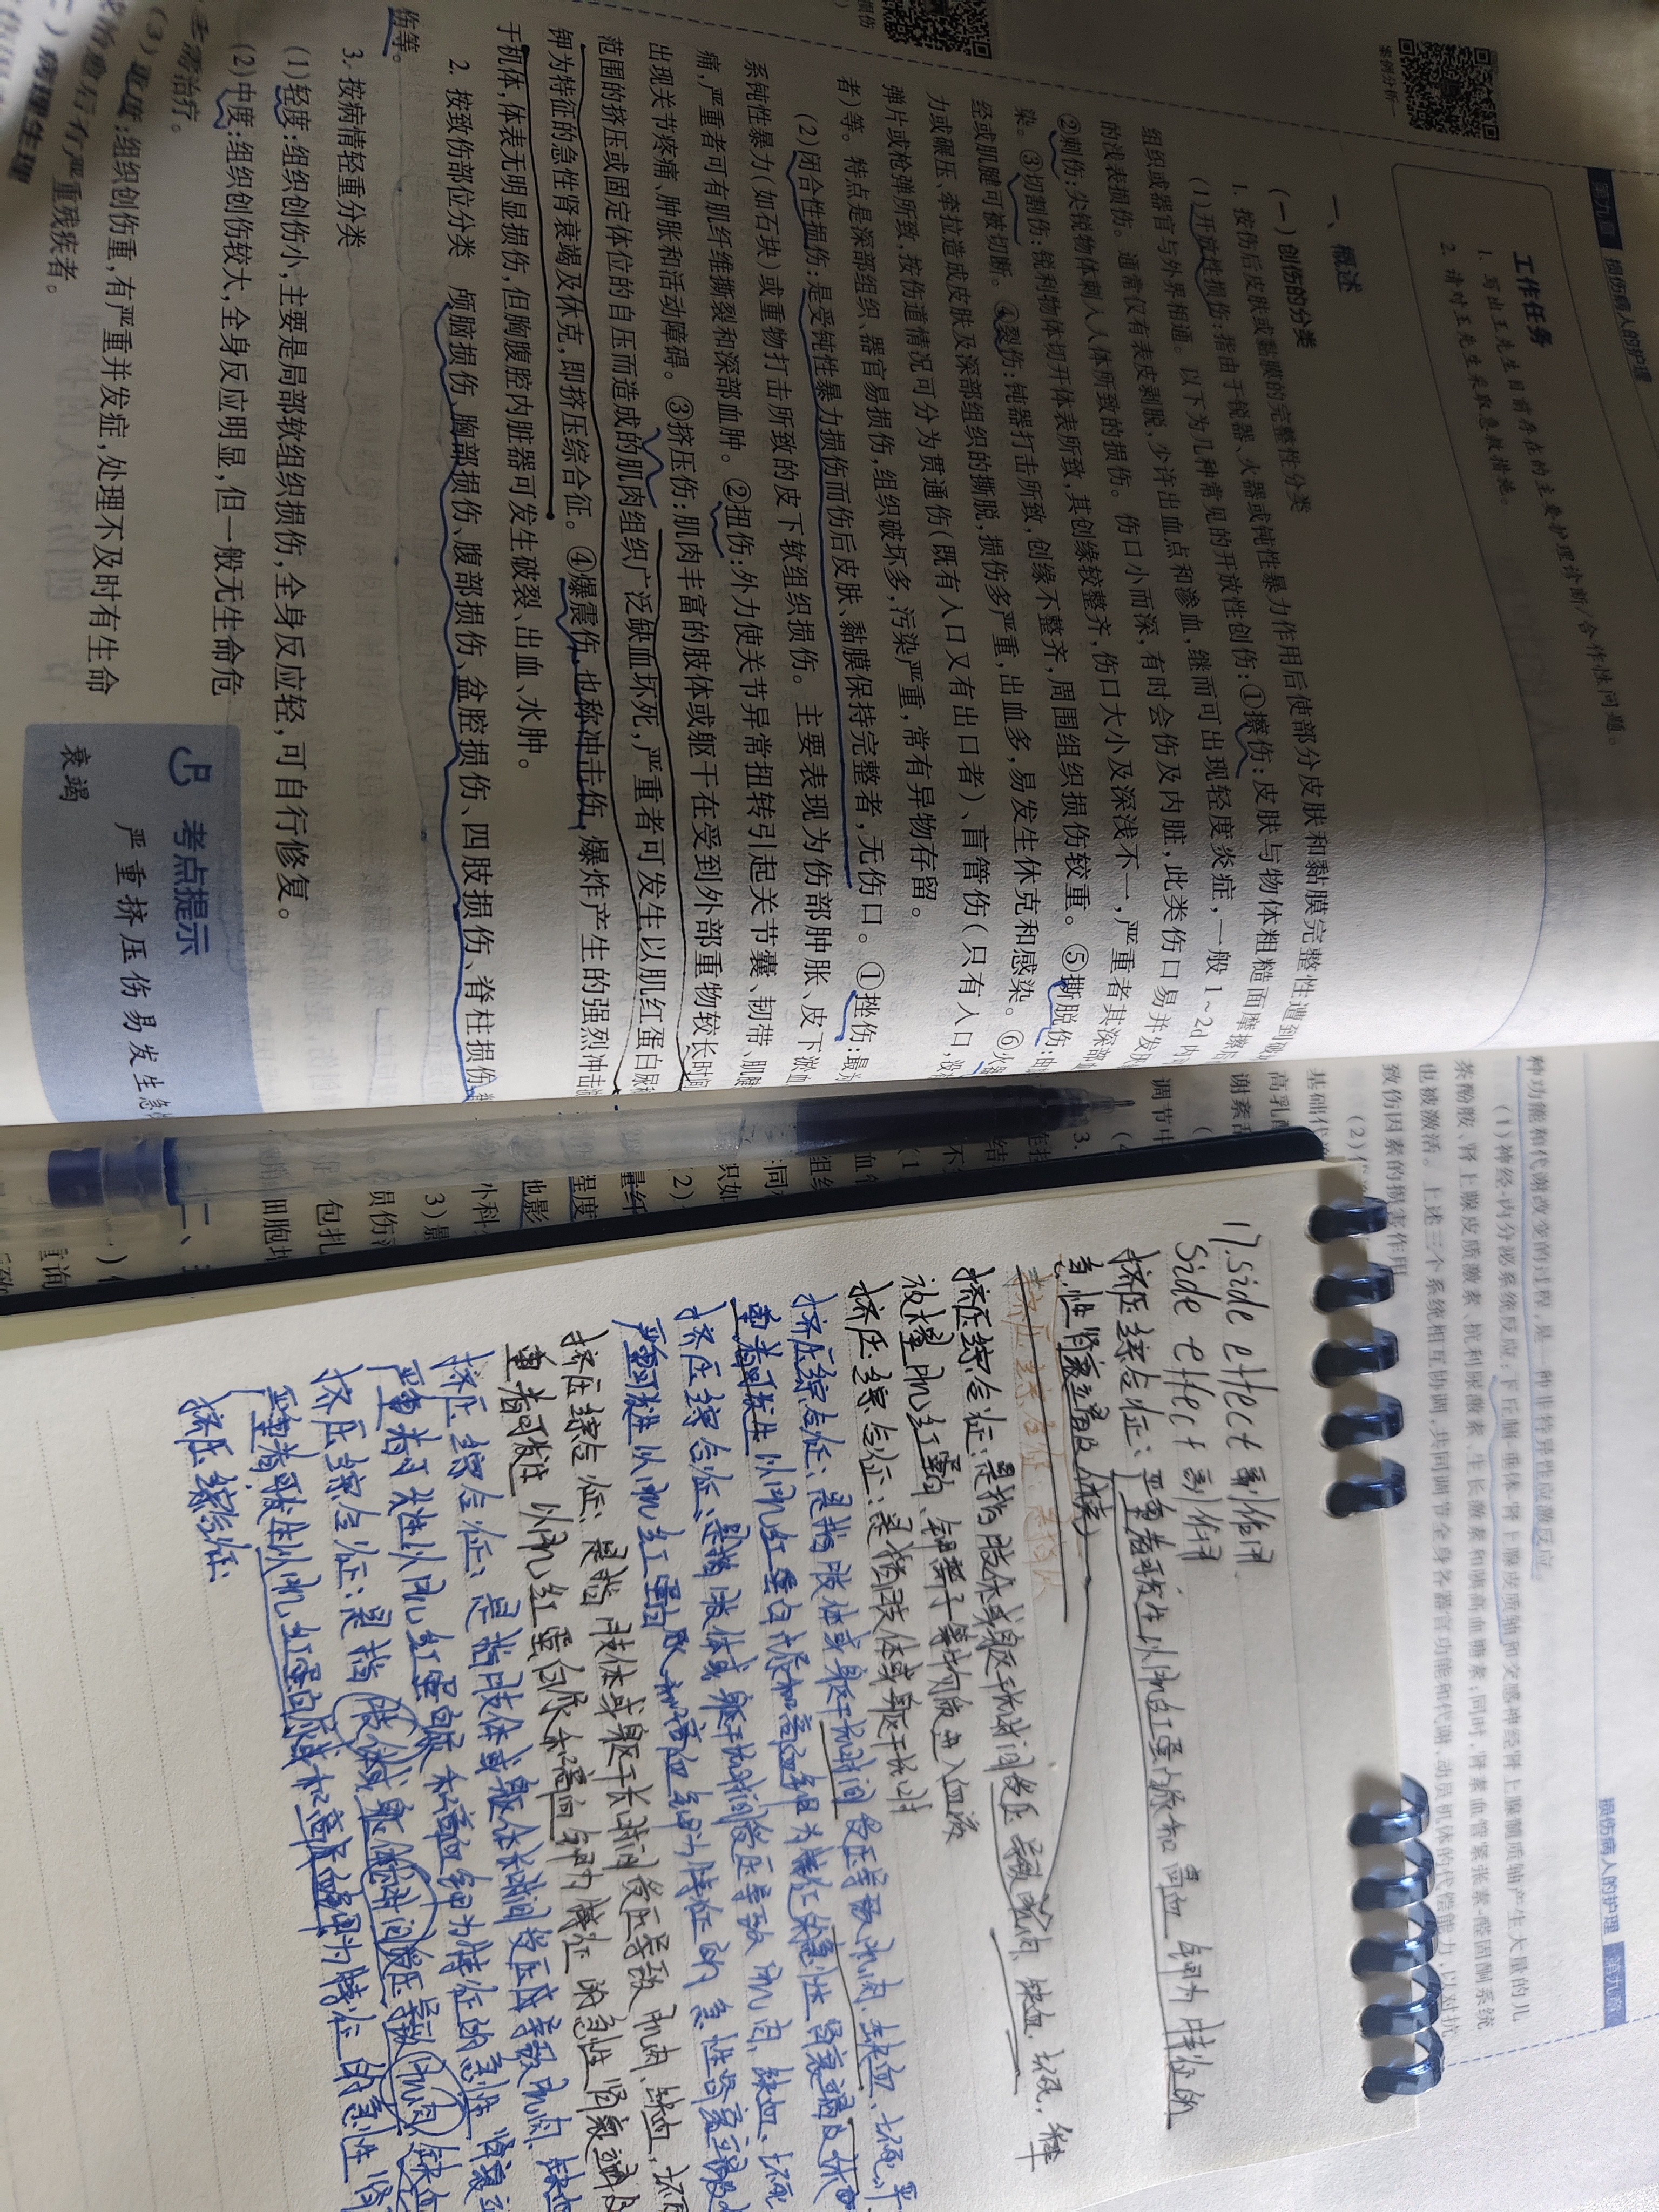 案例分析一
第九章 损伤病人的护理
工作任务
1. 写出王先生目前存在的主要护理诊断/合作性问题。
2. 请对王先生采取急救措施。
一、概述
(一)创伤的分类
1. 按伤后皮肤或黏膜的完整性分类
(1)开放性损伤:指由于锐器、火器或钝性暴力作用后使部分皮肤和黏膜完整性遭到
组织或器官与外界相通。以下为几种常见的开放性创伤:①擦伤:皮肤与物体粗糙面摩擦
的浅表损伤。通常仅有表皮剥脱,少许出血点和渗血,继而可出现轻度炎症,一般1~2d内
②刺伤:尖锐物体刺入人体所致的损伤。伤口小而深,有时会伤及内脏,此类伤口易并发
染。③切割伤:锐利物体切开体表所致,其创缘较整齐,伤口大小及深浅不一,严重者其深部
经或肌腱可被切断。④裂伤:钝器打击所致,创缘不整齐,周围组织损伤较重。⑤撕脱伤:
力或碾压、牵拉造成皮肤及深部组织的撕脱,损伤多严重,出血多,易发生休克和感染。⑥
弹片或枪弹所致,按伤道情况可分为贯通伤(既有入口又有出口者)、盲管伤(只有入口,
者)等。特点是深部组织、器官易损伤,组织破坏多,污染严重,常有异物存留。
(2)闭合性损伤:是受钝性暴力损伤而伤后皮肤、黏膜保持完整者,无伤口。①挫伤:最
系钝性暴力(如石块)或重物打击所致的皮下软组织损伤。主要表现为伤部肿胀、皮下淤血
痛,严重者可有肌纤维撕裂和深部血肿。②扭伤:外力使关节异常扭转引起关节囊、韧带、肌腱
出现关节疼痛、肿胀和活动障碍。③挤压伤:肌肉丰富的肢体或躯干在受到外部重物较长时间
范围的挤压或固定体位的自压而造成的肌肉组织广泛缺血坏死,严重者可发生以肌红蛋白尿
钾为特征的急性肾衰竭及休克,即挤压综合征。④爆震伤,也称冲击伤,爆炸产生的强烈冲击
于机体,体表无明显损伤,但胸腹腔内脏器可发生破裂、出血、水肿。
2. 按致伤部位分类 颅脑损伤、胸部损伤、腹部损伤、盆腔损伤、四肢损伤、脊柱损伤
伤等。
3. 按病情轻重分类
(1)轻度:组织创伤小,主要是局部软组织损伤,全身反应轻,可自行修复。
(2)中度:组织创伤较大,全身反应明显,但一般无生命危
(3)重度:组织创伤重,有严重并发症,处理不及时有生命
有严重残疾者。
病理生理
考点提示
严重挤压伤易发生急性
衰竭
损伤病人的护理 第九章
种功能和代谢改变的过程,是一种非特异性应激反应。
(1)神经-内分泌系统反应:下丘脑-垂体-肾上腺皮质轴和交感神经肾上腺髓质轴产生大量的儿
茶酚胺、肾上腺皮质激素、抗利尿激素、生长激素和胰高血糖素;同时,肾素血管紧张素-醛固酮系统
也被激活。上述三个系统相互协调,共同调节全身各器官功能和代谢,动员机体的代偿能力,以对抗
致伤因素的损害作用
17. side effect 副作用
side effect 副作用
挤压综合征:严重者可发生以肌红蛋白尿和高血钾为特征的
急性肾衰竭及休克)
挤压综合征:是指肢体或躯干长时间受压导致肌肉、缺血、坏死,
放大量肌红蛋白、钾离子等物质进入血液
挤压综合征:是指肢体或躯干长时
挤压综合征:是指肢体或躯干长时间受压导致肌肉、缺血、坏死,严
重者可发生以肌红蛋白尿和高血钾为特征的急性肾衰竭及休克
挤压综合征:是指肢体或躯干长时间受压导致肌肉、缺血、坏死
严重可发生以肌红蛋白尿和高血钾为特征的急性肾衰竭及
挤压综合征:是指肢体或躯干长时间受压导致肌肉、缺血、坏死
重者可发生以肌红蛋白尿和高血钾为特征的急性肾衰竭及
挤压综合征:是指肢体或躯体长时间受压导致肌肉、缺血
严重者可发生以肌红蛋白尿和高血钾为特征的急性肾衰
挤压综合征:是指肢体或躯体长时间受压导致肌肉缺血
严重者可发生以肌红蛋白尿和高血钾为特征的急性肾
挤压综合征: